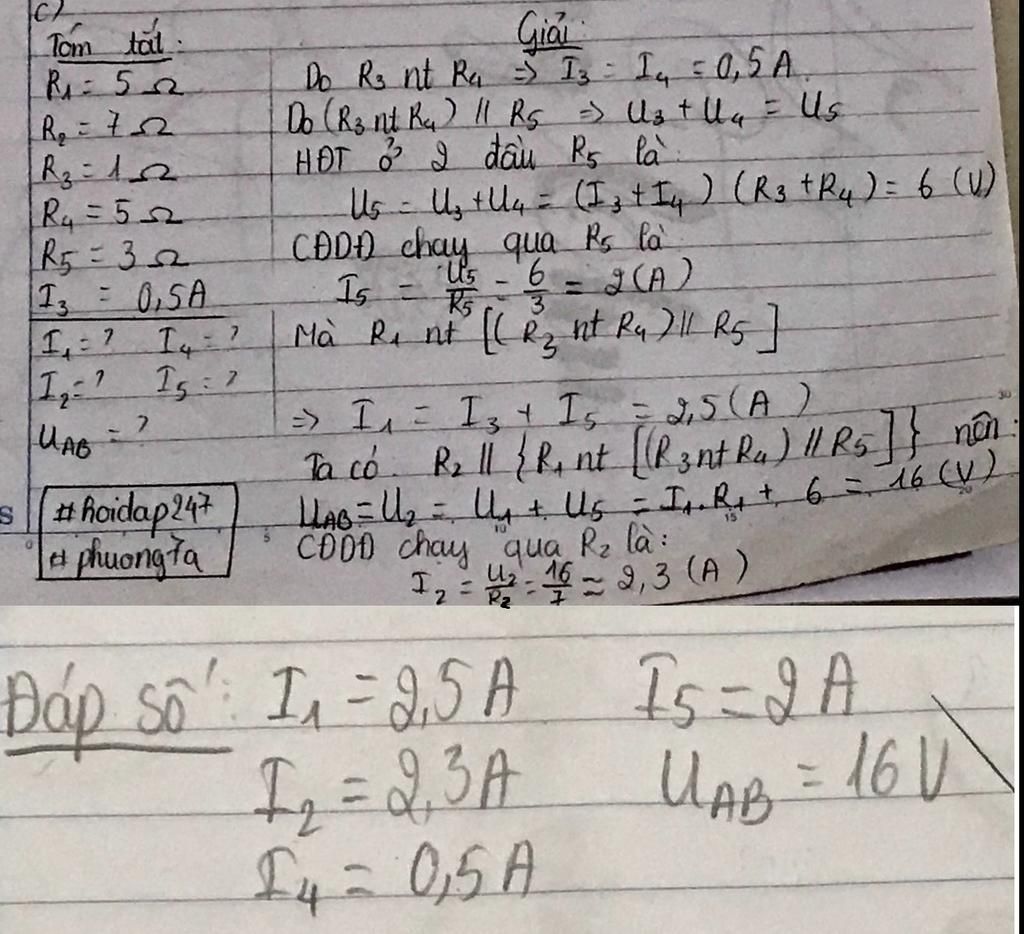 c)
Tóm tắt:
R₁ = 5 Ω
R₂ = 7 Ω
R₃ = 1 Ω
R₄ = 5 Ω
R₅ = 3 Ω
I₃ = 0,5A
I₁ = ? I₄ = ?
I₂ = ? I₅ = ?
U_AB = ?
#hoidap247
#phuong7a
Giải:
Do R₃ nt R₄ => I₃ = I₄ = 0,5 A.
Do (R₃ nt R₄) // R₅ => U₃ + U₄ = U₅
HĐT ở 2 đầu R₅ là:
U₅ = U₃ + U₄ = (I₃ + I₄) (R₃ + R₄) = 6 (V)
CĐDĐ chạy qua R₅ là
I₅ = U₅/R₅ = 6/3 = 2 (A)
Mà R₁ nt [(R₃ nt R₄) // R₅]
=> I₁ = I₃ + I₅ = 2,5 (A)
Ta có R₂ // {R₁ nt [(R₃ nt R₄) // R₅]} nên:
U_AB = U₂ = U₁ + U₅ = I₁.R₁ + 6 = 16 (V)
CĐDĐ chạy qua R₂ là:
I₂ = U₂/R₂ = 16/7 ≈ 2,3 (A)
Đáp số: I₁ = 2,5 A I₅ = 2 A
I₂ = 2,3 A U_AB = 16 V
I₄ = 0,5 A